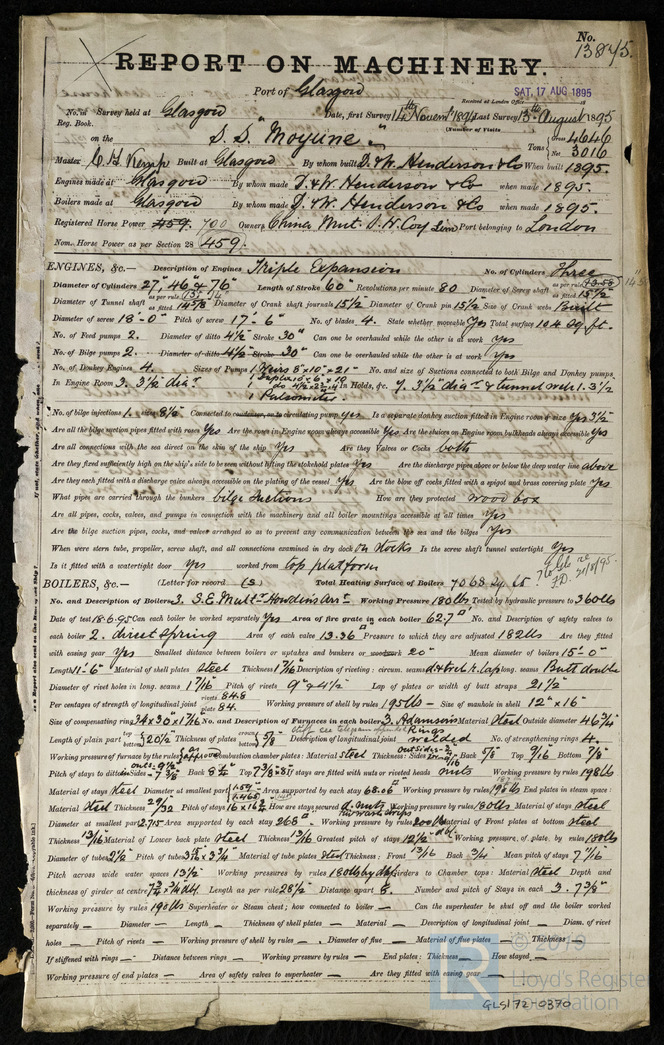 No. 13875.
REPORT ON MACHINERY.
Port of Glasgow
Received at London Office SAT. 17 AUG 1895
No. in Survey held at Glasgow Date, first Survey 14th Novemr 1894 Last Survey 13th August 1895
Reg. Book. (Number of Visits
on the S.S. "Moyune" Tons Gross 4646 Net 3016
Master C. H. Kemp Built at Glasgow By whom built D. & W. Henderson & Co When built 1895.
Engines made at Glasgow By whom made D. & W. Henderson & Co when made 1895.
Boilers made at Glasgow By whom made D. & W. Henderson & Co when made 1895.
Registered Horse Power 459. 700 Owners China Mut. S. N. Coy Lim Port belonging to London
Nom. Horse Power as per Section 28 459.
ENGINES, &c.— Description of Engines Triple Expansion No. of Cylinders Three
Diameter of Cylinders 27", 46 & 76" Length of Stroke 60" Revolutions per minute 80 Diameter of Screw shaft as per rule as fitted 15 1/2
Diameter of Tunnel shaft as per rule as fitted 14 5/8 Diameter of Crank shaft journals 15 1/2 Diameter of Crank pin 15 1/2" Size of Crank webs Built
Diameter of screw 18'-0" Pitch of screw 17'-6" No. of blades 4. State whether moveable Yes Total surface 104 Sq. ft.
No. of Feed pumps 2. Diameter of ditto 4 1/2" Stroke 30" Can one be overhauled while the other is at work yes
No. of Bilge pumps 2. Diameter of ditto 4 1/2" Stroke 30" Can one be overhauled while the other is at work yes
No. of Donkey Engines 4. Sizes of Pumps No. and size of Suctions connected to both Bilge and Donkey pumps
In Engine Room 3. 3 1/2" diar In Holds, &c. 7. 3 1/2" diar & tunnel well 1. 3 1/2
1 Pulsometer.
No. of bilge injections 1. sizes 8 1/2" Connected to condenser, or to circulating pump yes Is a separate donkey suction fitted in Engine room & size Yes 3 1/2
Are all the bilge suction pipes fitted with roses Yes Are the roses in Engine room always accessible Yes Are the sluices on Engine room bulkheads always accessible Yes
Are all connections with the sea direct on the skin of the ship Yes Are they Valves or Cocks both
Are they fixed sufficiently high on the ship's side to be seen without lifting the stokehold plates Yes Are the discharge pipes above or below the deep water line above
Are they each fitted with a discharge valve always accessible on the plating of the vessel Yes Are the blow off cocks fitted with a spigot and brass covering plate Yes
What pipes are carried through the bunkers bilge suctions How are they protected wood box
Are all pipes, cocks, valves, and pumps in connection with the machinery and all boiler mountings accessible at all times yes
Are the bilge suction pipes, cocks, and valves arranged so as to prevent any communication between the sea and the bilges yes
When were stern tube, propeller, screw shaft, and all connections examined in dry dock on stocks Is the screw shaft tunnel watertight yes
Is it fitted with a watertight door yes worked from top platform
BOILERS, &c.— (Letter for record (S) Total Heating Surface of Boilers 7068 sq ft
No. and Description of Boilers 3. S.E. Mult. Howdens Arrt Working Pressure 180 lbs Tested by hydraulic pressure to 360 lbs
Date of test 18.6.95 Can each boiler be worked separately Yes Area of fire grate in each boiler 62.7 No. and Description of safety valves to
each boiler 2. direct spring Area of each valve 13.36 Pressure to which they are adjusted 182 lbs Are they fitted
with easing gear Yes Smallest distance between boilers or uptakes and bunkers or woodwork 20" Mean diameter of boilers 15'-0"
Length 11'-6" Material of shell plates Steel Thickness 1 7/16 Description of riveting: circum. seams long. seams Butt double
Diameter of rivet holes in long. seams 1 7/16 Pitch of rivets 9" & 4 1/2 Lap of plates or width of butt straps 21 1/2
Per centages of strength of longitudinal joint rivets 84.8 plate 84. Working pressure of shell by rules 195 lbs Size of manhole in shell 12" x 16"
Size of compensating ring 34 x 30 x 1 7/16 No. and Description of Furnaces in each boiler 3. Adamsons Material Steel Outside diameter 46 3/4
Length of plain part top bottom 20 1/2 Thickness of plates crown bottom 5/8 Description of longitudinal joint welded No. of strengthening rings 4.
Working pressure of furnace by the rules as approved Combustion chamber plates: Material Steel Thickness: Sides Back 5/8 Top 9/16 Bottom 7/8
Pitch of stays to ditto: Sides Back 8 1/2 Top If stays are fitted with nuts or riveted heads nuts Working pressure by rules 198 lbs
Material of stays Steel Diameter at smallest part Area supported by each stay 68.06 Working pressure by rules End plates in steam space:
Material Steel Thickness 29/32 Pitch of stays How are stays secured d. nuts Working pressure by rules 180 lbs Material of stays Steel
Diameter at smallest part 2.715 Area supported by each stay 268 Working pressure by rules Material of Front plates at bottom Steel
Thickness 13/16 Material of Lower back plate Steel Thickness 13/16 Greatest pitch of stays Working pressure of plate by rules 180 lbs
Diameter of tubes 2 1/2 Pitch of tubes Material of tube plates Steel Thickness: Front 13/16 Back 3/4 Mean pitch of stays 7 11/16
Pitch across wide water spaces 13 1/2 Working pressures by rules 180 lbs Girders to Chamber tops: Material Steel Depth and
thickness of girder at centre Length as per rule 28 1/2 Distance apart 8. Number and pitch of Stays in each 3. 7 3/8"
Working pressure by rules 190 lbs Superheater or Steam chest; how connected to boiler — Can the superheater be shut off and the boiler worked
separately — Diameter — Length — Thickness of shell plates — Material — Description of longitudinal joint — Diam. of rivet
holes — Pitch of rivets — Working pressure of shell by rules — Diameter of flue — Material of flue plates — Thickness —
If stiffened with rings — Distance between rings — Working pressure by rules — End plates: Thickness — How stayed —
Working pressure of end plates — Area of safety valves to superheater — Are they fitted with easing gear —
© 2019
Lloyd's Register
Foundation
GLS172-0370